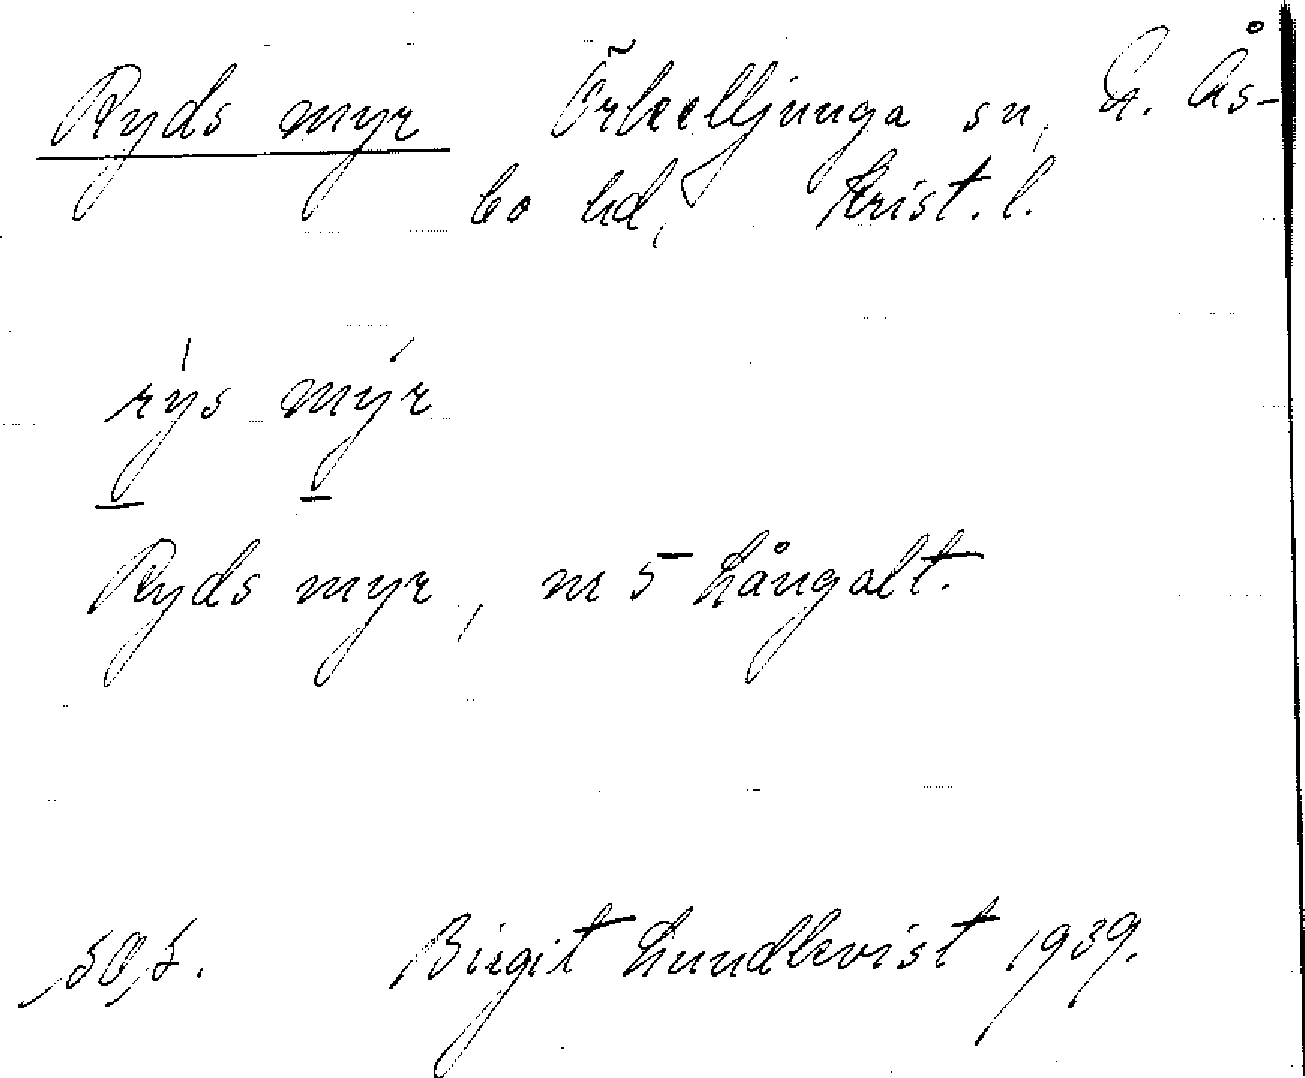 Ryds myr Örkelljunga sn, N. Ås-
bo hd, Krist. l.
rýs mýr
Ryds myr, nr 5 Långalt.
Birgit Lundkvist 1939.